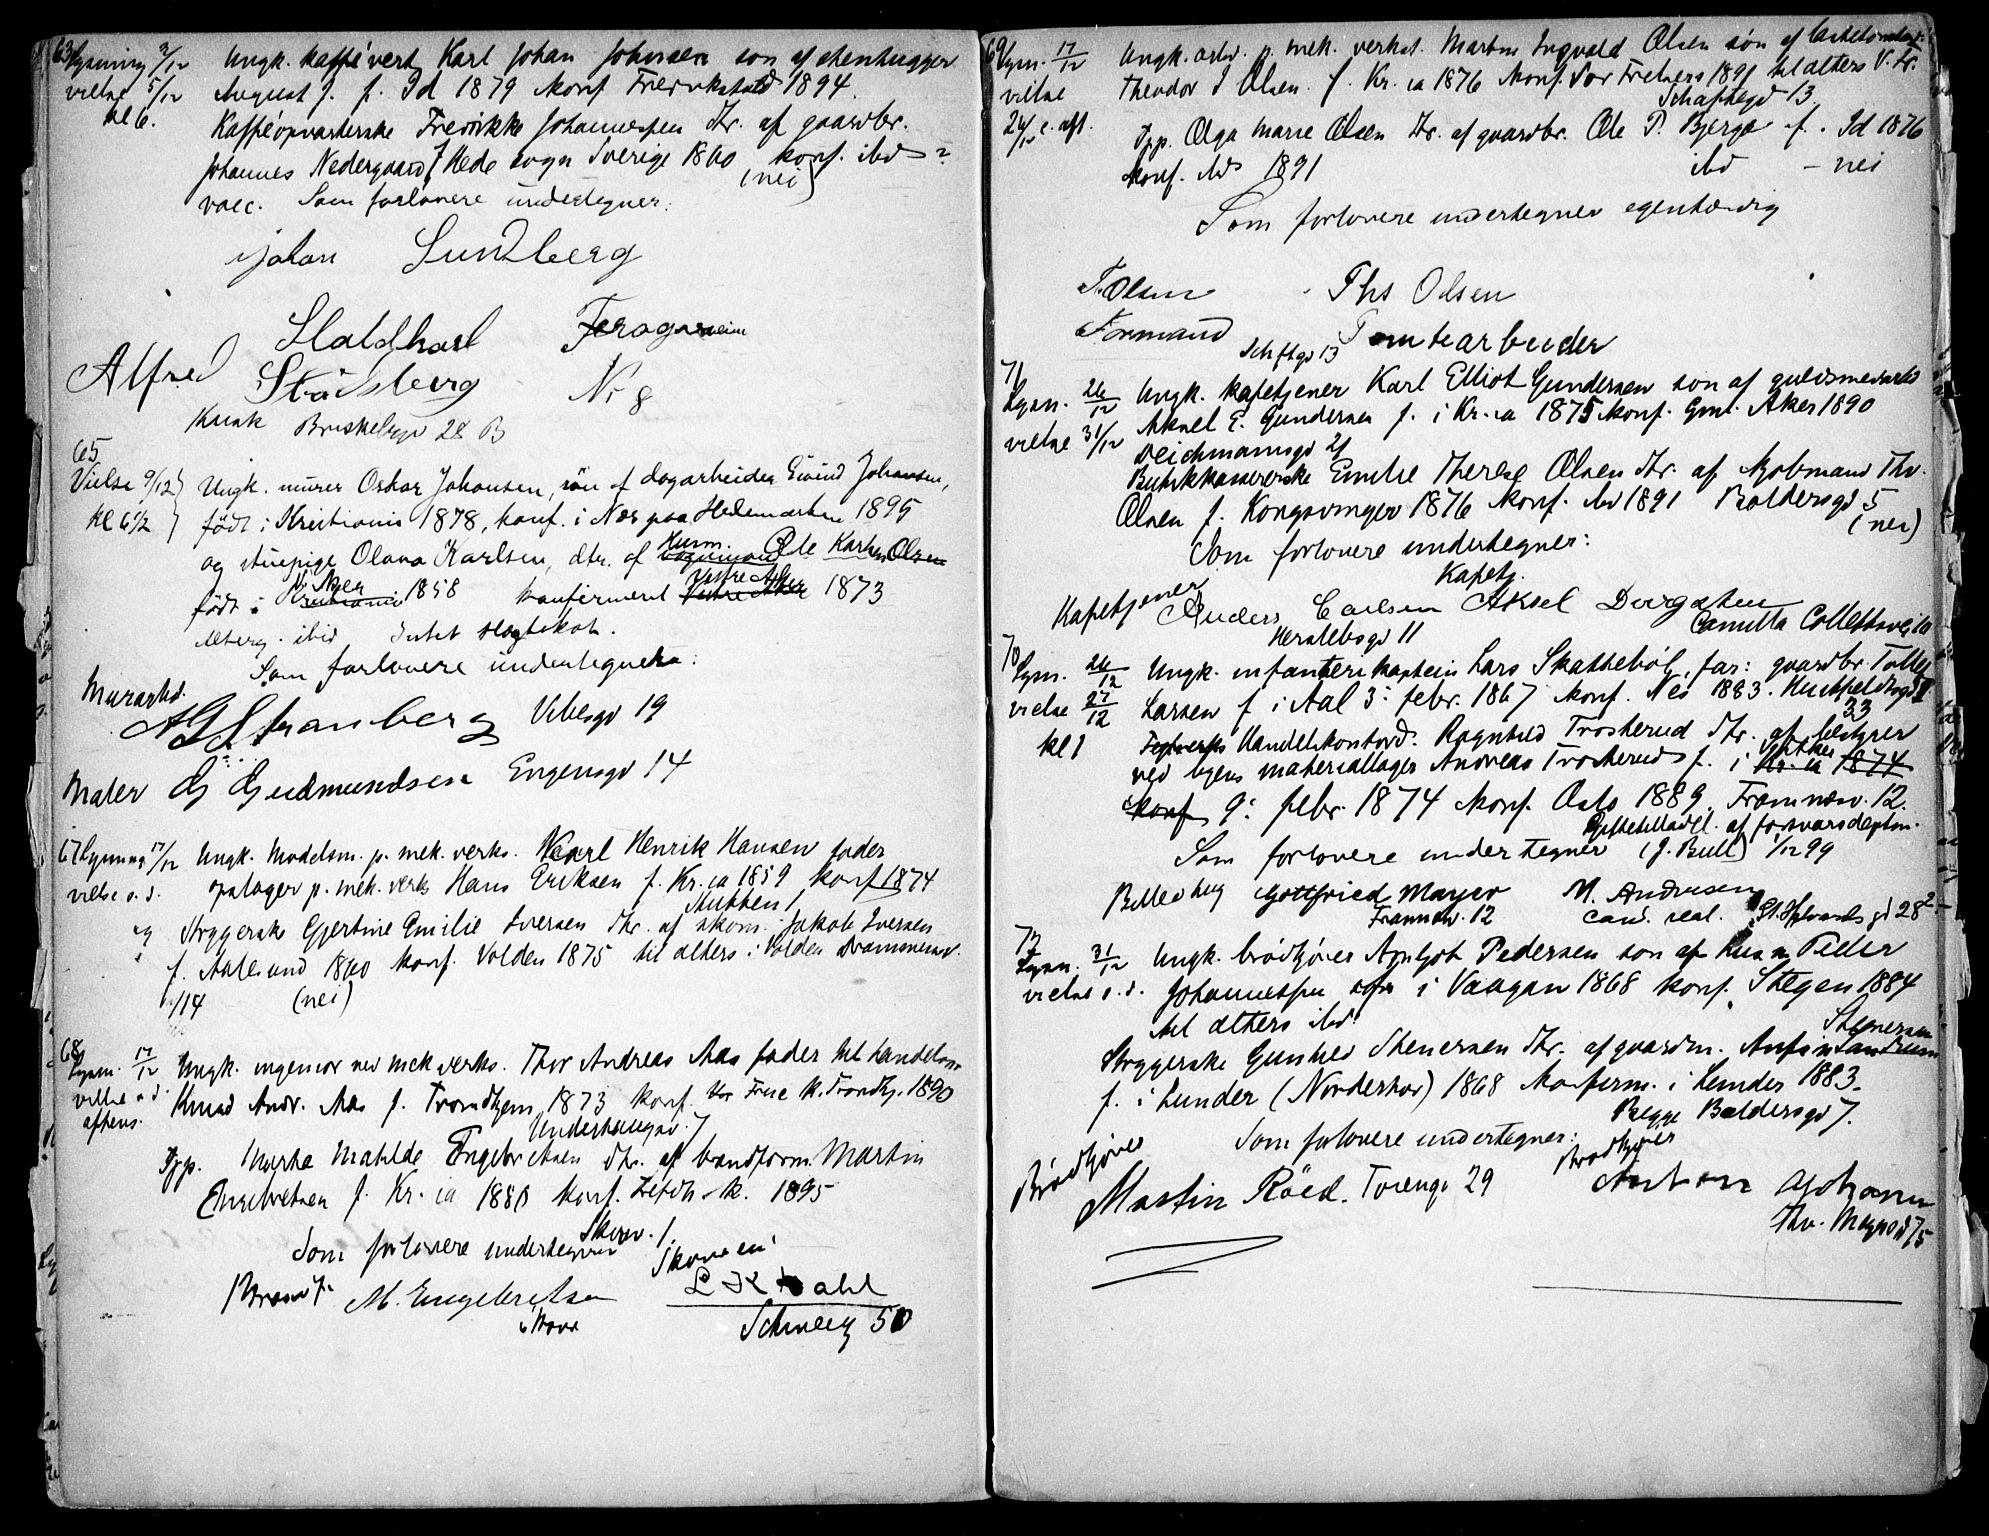 63 Lysning 3/12 Ungk. kaffévert Karl Johan Johnsen søn af stenhugger
vielse 5/12 August J. f. Id 1879 konf Fredrikstad 1894
kl 6. Kafféopvarterske Fredrikke Johannessen Dtr. af gaardbr.
Johannes Nedergaard f Hede sogn Sverige 1860 konf. ibd ?
(nei)
vacc. Som forlovere undertegner:
Johan Sundberg
Staldkarl
Alfred Strödsberg Nr 8
Kusk Briskebyv 28 B
65
Vielse 9/12 Ungk. murer Oskar Johansen, søn af dagarbeider Eivind Johansen,
kl 6 1/2 født i Kristiania 1878, konf. i Nes paa Hedemarken 1895
og stuepige Olava Karlsen, dtr. af Husm. Ole Karlsen Olsen
født i V. Aker Kristiania 1858 konfirmeret Vestre Aker 1873
ibid Intet slægtskab.
Som forlovere undertegnede:
Murarbd.
Stranberg Vibesgd 19
Maler G Gudmundsen Engensgd 14
67 Lysning 17/12 Ungk. Modelsn. p. mek. verks. Karl Henrik Hansen fader
vielse s. d. opslager p. mek. verks Hans Eriksen f. Kr.ia 1859 konf 1874
Stubben 1
og Strygerske Gjertine Emilie Iversen Dtr. af skom. Jakob Iversen
f. Aalesund 1860 konf. Volden 1875 til alters i Volden Drammensv.
14 (nei)
68
Lysn. 17/12 Ungk. ingeniør ved mek verks. Thor Andreas Aas fader
vielse s d. Knud Andr. Aas f. Trondhjem 1873 konf. Vor Frue K. Trondhj. 1890
aftens. Underhaugsv. 7
Pge. Marthe Mathilde Engebretsen Dtr. af brandform. Martin
Engebretsen f. Kr. ia 1880 konf. 1895
Som forlovere undertegner
M. Engebretsen
Dahl
Schweig 50
69 Lysn. 17/12 Ungk. arbd. p. mek. verkst. Martin Ingvald Olsen søn af
vielse Theodor I Olsen. f. Kr. ia 1876 konf. Vor Frelsers 1891 til alters V. Fr.
Schaftegd 13
24/12 e. aft. Pge. Olga Marie Olsen Dtr. af gaardbr. Ole P. Bjerge f. Id 1876
konf. ibd 1891 ibd – nei
Som forlovere undertegner egenhændig
T. Olsen Ths Olsen
Formand Tomtearbeider
Schftgd 13
71
Lysn. 26/12 Ungk. kapetjener Karl Elliot Gundersen søn af guldsmedarbd
vielse 31/12 Aksel E. Gundersen f. i Kr.ia 1875 konf. Gml. Aker 1890
Deichmannsgd 21
Butikkassererske Emilie Therese Olsen Dtr. af kjøbmand Thv.
Olsen f. Kongsvinger 1876 konf. ibd 1891 Baldersgd 5
(nei)
Som forlovere undertegner:
Kapetj.
Kapetjener Anders Carlsen Aksel
Herslebsgd 11 Camilla Collettsvej 10
70
Lysn. 26/12 Ungk. infanterikaptein Lars Skattebøl, far: gaardbr. Tollef
vielse 27/12 Larsen f i Aal 3: febr. 1867 konf. Nes 1883. Huitfeldtsgd
33
kl 1 Handelskontord. Ragnhild Trosterud Dtr. af bestyrer
ved byens materiallager Andreas Trosterud f. i Kr. ia 1874
konf 9: febr. 1874 konf. Oslo 1889. Framnæsv. 12.
Giftetilladel. af forsvarsdeptm.
Som forlovere undertegner (J. Bull) 1/12 99
Billedhug Gottfried Mayer M. Andresen
Framnæsv. 12 cand. real. St. Halvards gd 28
72
Lysn. 31/12 Ungk. brødkjører Arnljot Pedersen søn af husm. Peder
vielse s. d. Johannessen i Vaagan 1868 konf. Stegen 1884
til alters ibd
Strygerske Gunhild Stenersen Dtr. af gaardm. Stenersen
f. i Lunder (Norderhov) 1868 konfirm. i Lunder 1883.
Begge Baldersgd 7.
Som forlovere undertegner:
Brødkjører Brødkjører
Martin Röed. Torengt 29 Anton Johansen
Thv. Meyersgd 75